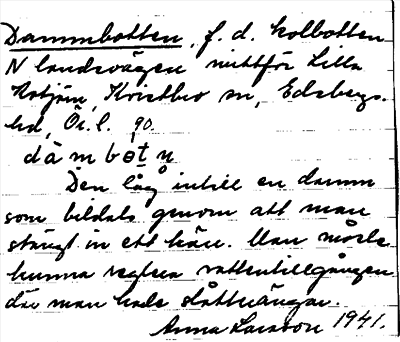 Dammbotten, f. d. kolbotten
N landsvägen mittför Lilla
Kotjärn, Kvistbro sn, Edsbergs
hd, Ör. l. 90.
dàmbọtṇ
Den låg intill en damm
som bildats genom att man
stängt in ett kärr. Man måste
kunna reglera vattentillgången
där man hade slåtterängar.
Anna Larsson 1941.